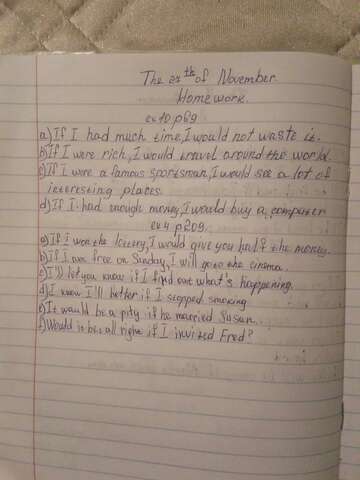 The 21th of November
Homework.
ex 10 p 69
a) If I had much time, I would not waste it.
b) If I were rich, I would travel around the world.
c) If I were a famous sportsman, I would see a lot of
interesting places.
d) If I had enough money, I would buy a computer
ex 4 p 209
a) If I won the lottery, I would give you half the money.
b) If I am free on Sunday, I will go to the cinema.
c) I'll let you know if I find out what's happening.
d) I know I'll better if I stopped smoking.
e) It would be a pity if he married Susan.
f) Would it be all right if I invited Fred?